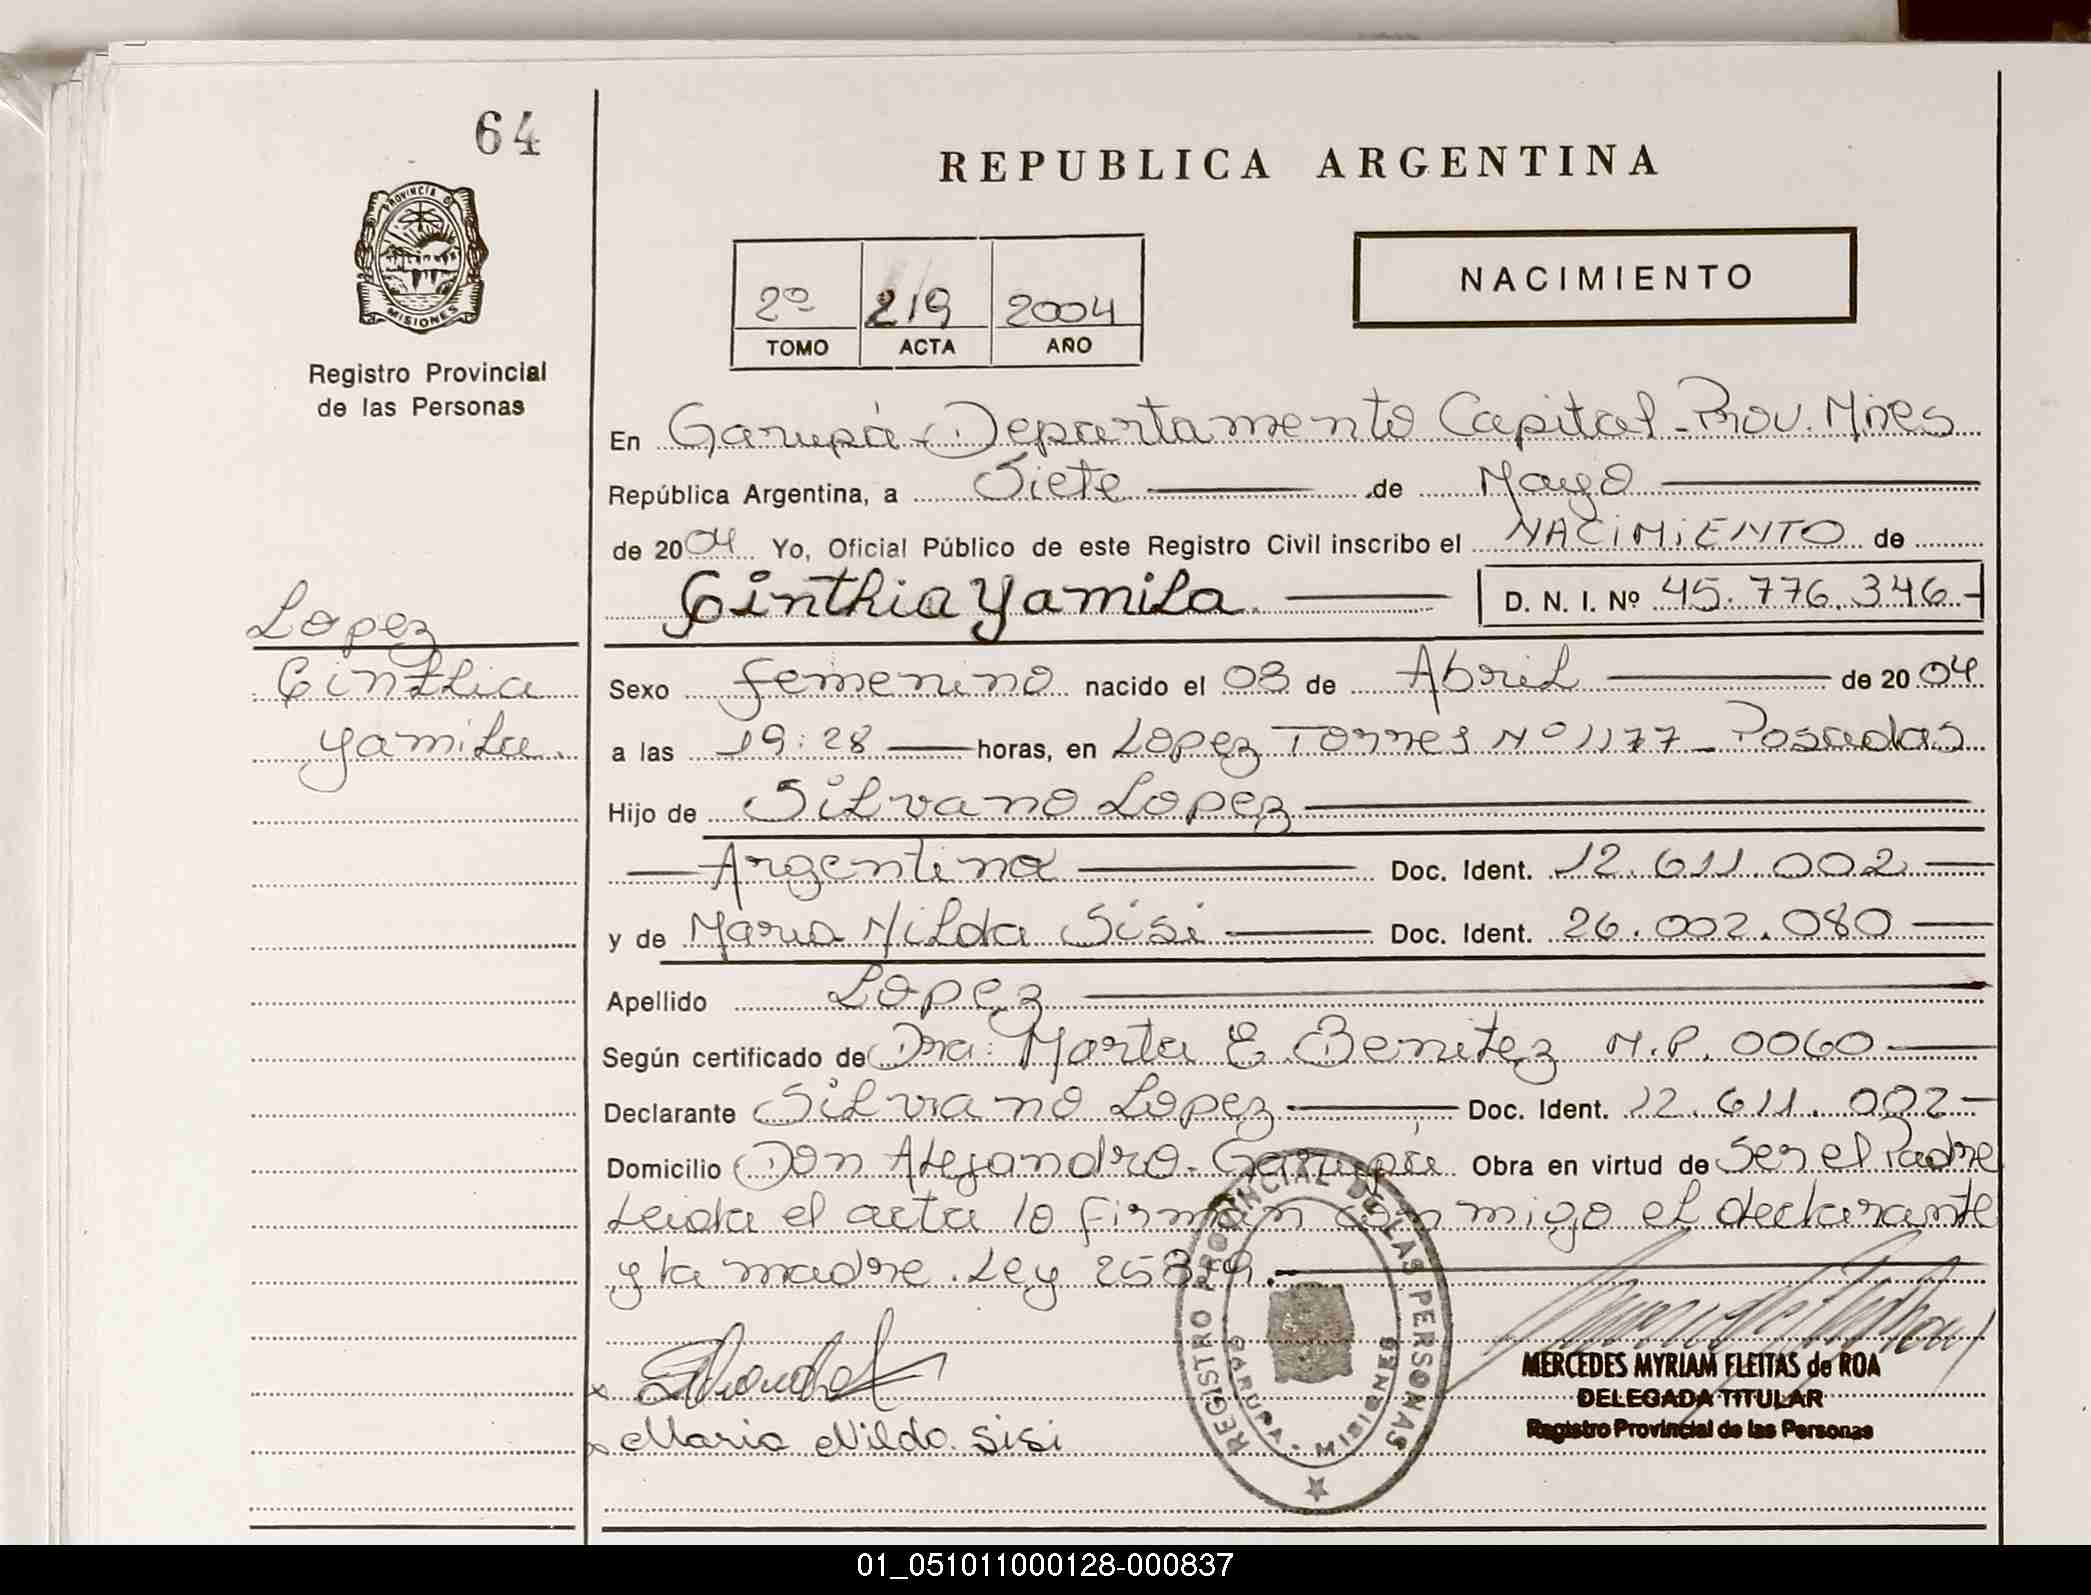 64
REPUBLICA ARGENTINA
PROVINCIA DE
MISIONES
Registro Provincial
de las Personas
NACIMIENTO
2º 219 2004
TOMO ACTA AÑO
En Garupá - Departamento Capital - Prov. Mnes
República Argentina, a Siete de Mayo
de 2004 Yo, Oficial Público de este Registro Civil inscribo el NACIMIENTO de
Cinthia Yamila D. N. I. Nº 45.776.346.-
Lopez
Cinthia
Yamila.
Sexo femenino nacido el 03 de Abril de 2004
a las 19:28 horas, en Lopez Torres Nº 1177 - Posadas
Hijo de Silvano Lopez
Argentina Doc. Ident. 12.611.002
y de Maria Nilda Sisi Doc. Ident. 26.002.080
Apellido Lopez
Según certificado de Dra. Marta E. Benitez M.P. 0060
Declarante Silvano Lopez Doc. Ident. 12.611.002-
Domicilio Don Alejandro - Garupá Obra en virtud de Ser el Padre
Leida el acta lo firman conmigo el declarante
y la madre. Ley 25819.
REGISTRO PROVINCIAL DE LAS PERSONAS
GARUPA - MISIONES
MERCEDES MYRIAM FLEITAS de ROA
DELEGADA TITULAR
Registro Provincial de las Personas
x
x Maria Nilda Sisi
01_051011000128-000837